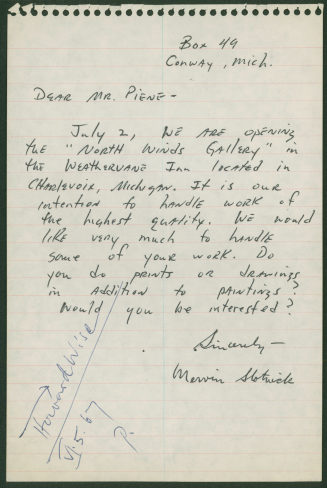 Box 49
Conway, Mich.
Dear Mr. Piene-
July 2, we are opening
the "North Winds Gallery" in
the Weathervane Inn located in
Charlevoix, Michigan. It is our
intention to handle work of
the highest quality. We would
like very much to handle
some of your work. Do
you do prints or drawings
in addition to paintings?
Would you be interested?
Sincerely-
Mervin Slotnick
Howard Wise
VI. 5. 67
P.